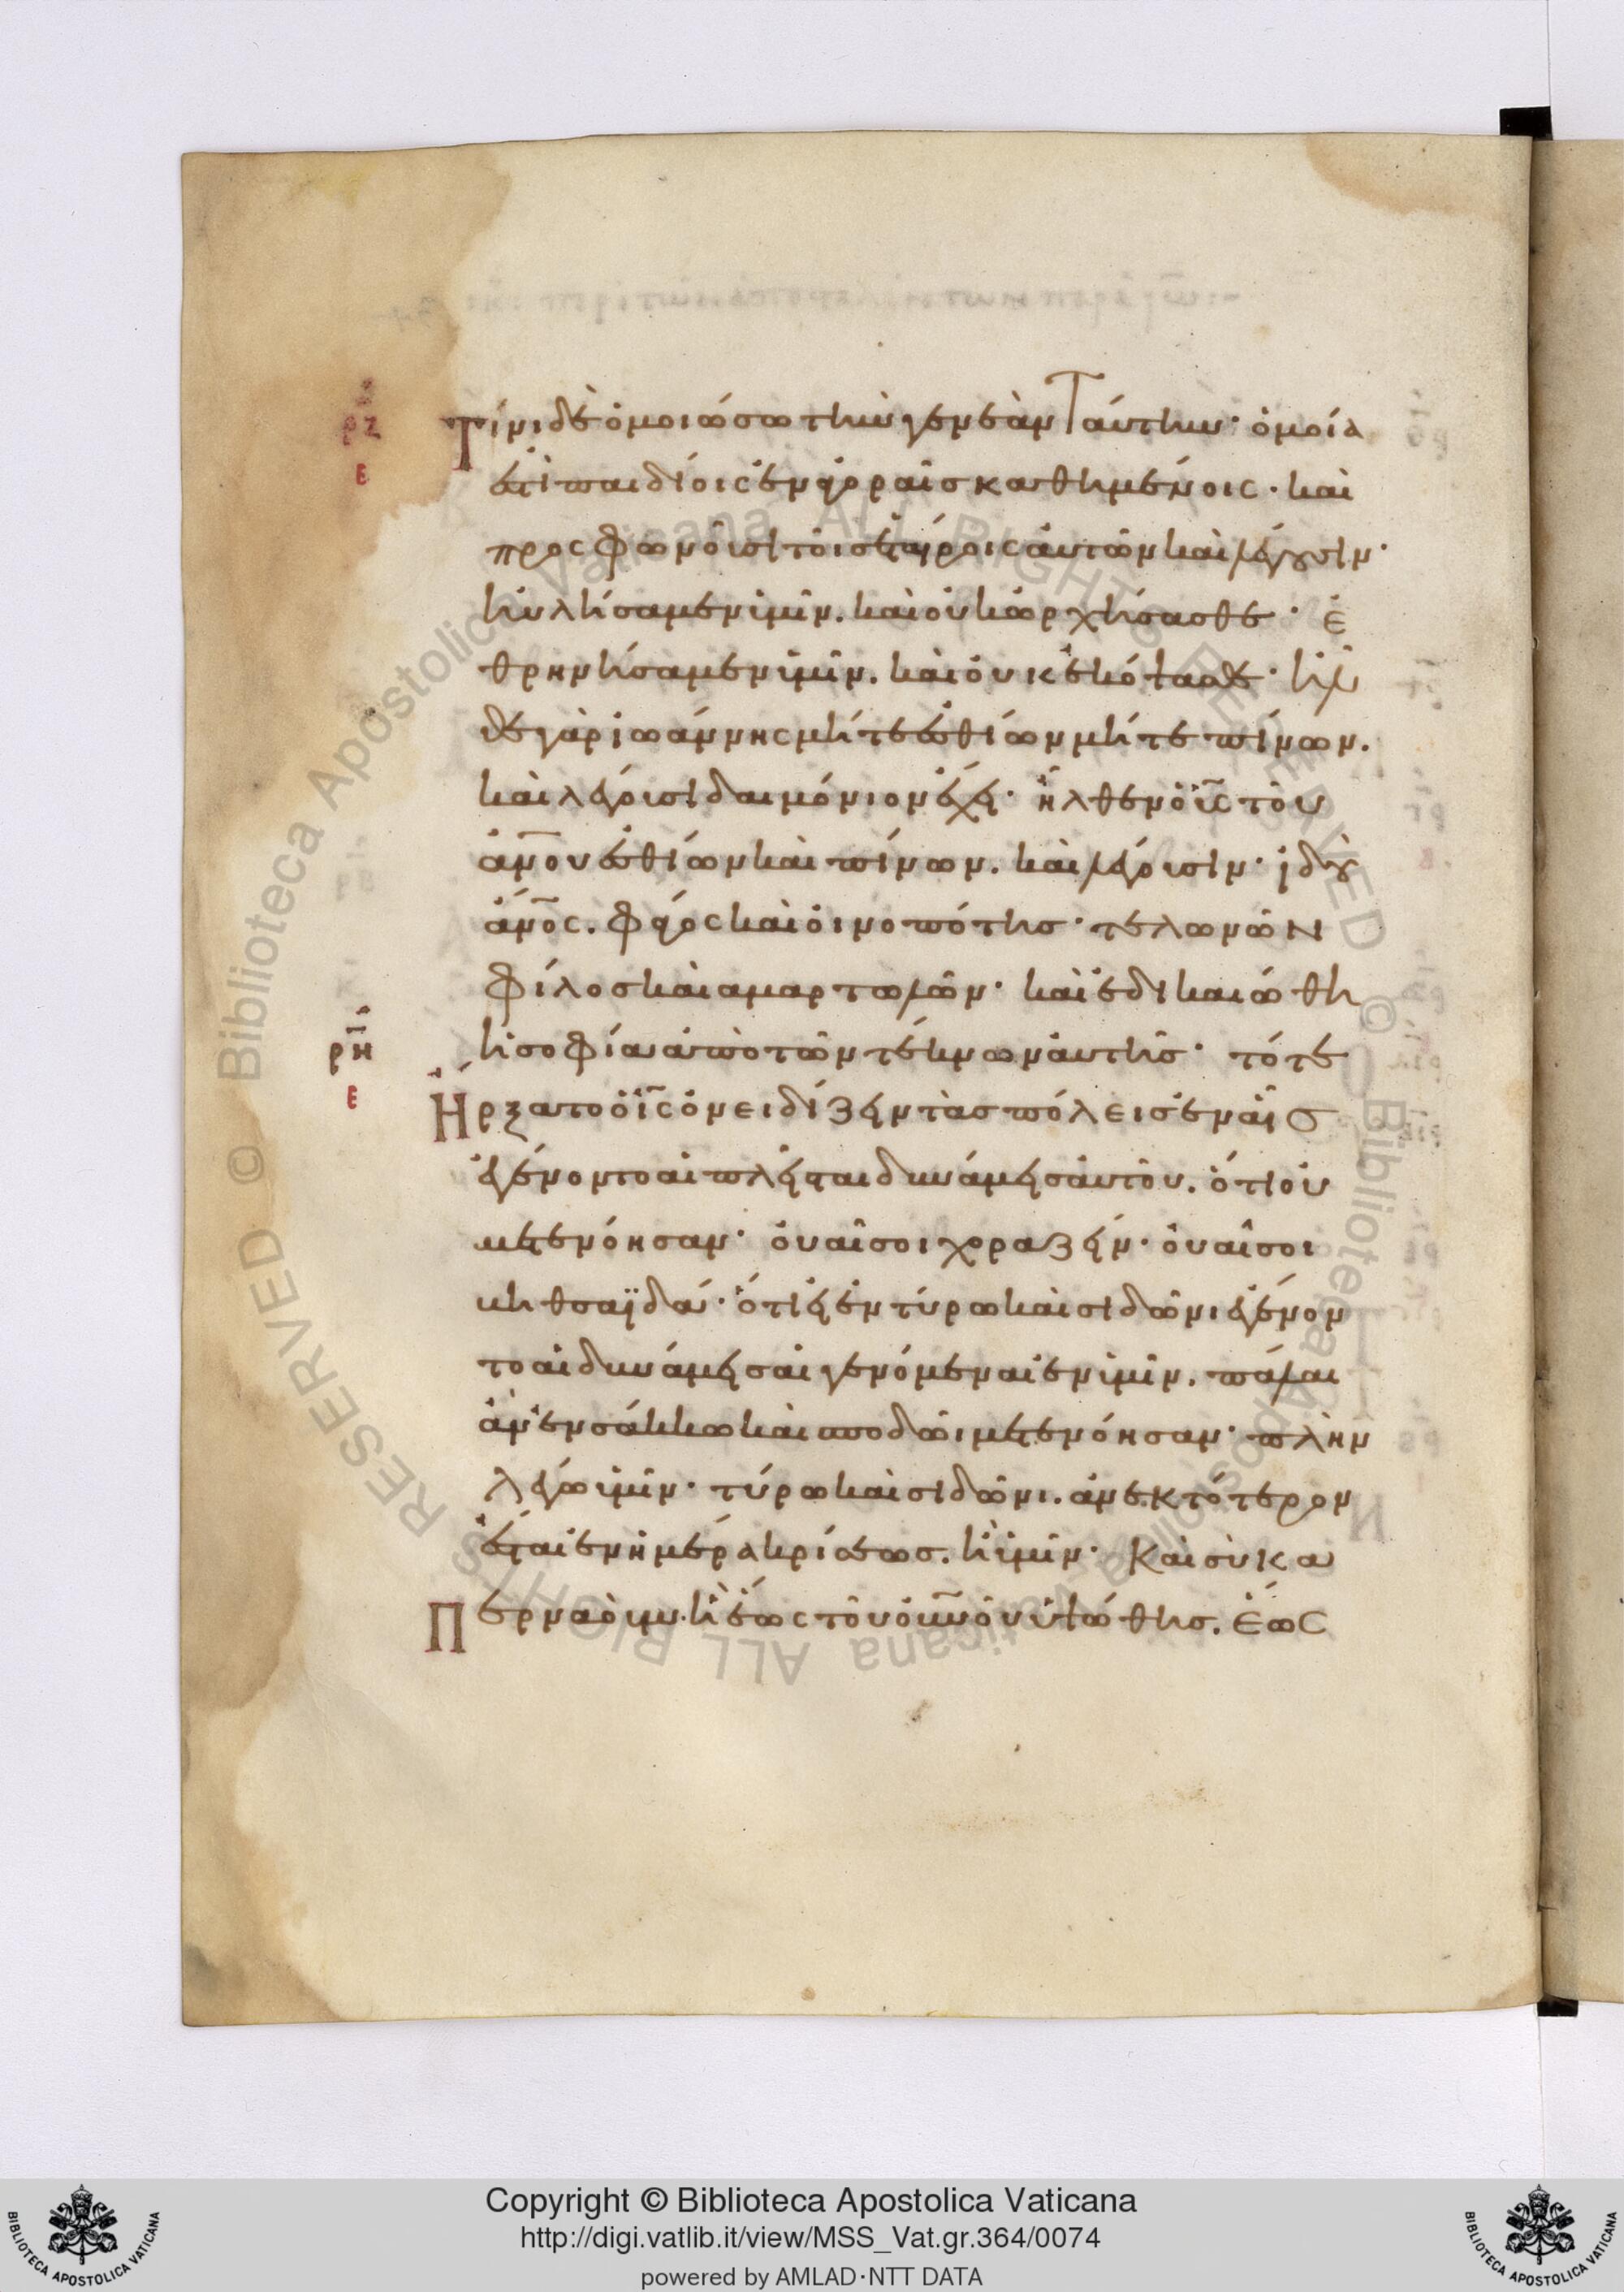 ρζ
ε
Τίνι δὲ ὁμοιώσω τὴν γενεὰν ταύτην· ὁμοία
ἐστὶ παιδίοις ἐν ἀγοραῖς καθημένοις· καὶ
προσφωνοῦσι τοῖς ἑταίροις αὐτῶν καὶ λέγουσιν·
ηὐλήσαμεν ὑμῖν. καὶ οὐκ ὠρχήσασθε· ἐ
θρηνήσαμεν ὑμῖν. καὶ οὐκ ἐκόψασθε· ἦλ
θε γὰρ ἰωάννης μήτε ἐσθίων μήτε πίνων.
καὶ λέγουσι δαιμόνιον ἔχει· ἦλθεν ὁ ῡς τοῦ
ἀν̅ου ἐσθίων καὶ πίνων. καὶ λέγουσιν· ἰδοὺ
ἄν̅ος. φάγος καὶ οἰνοπότης· τελωνῶν
φίλος καὶ αμαρτωλῶν· καὶ ἐδικαιώθη
ἡ σοφία ἀπὸ τῶν τέκνων αὐτῆς· τότε
ρη
ε
Ἤρξατο ὁ ι̅ς ὀνειδίζειν τὰς πόλεις ἐν αἷς
ἐγένοντο αἱ πλεῖσται δυνάμεις αὐτοῦ. ὅτι οὐ
μετενόησαν· οὐαί σοι χοραζείν· οὐαί σοι
βηθσαϊδά· ὅτι εἰ ἐν τύρω καὶ σιδῶνι ἐγένον
το αἱ δυνάμεις αἱ γενόμεναι ἐν ὑμῖν. πάλαι
ἂν ἐν σάκκω καὶ σποδῶ μετενόησαν· πλὴν
λέγω ὑμῖν· τύρω καὶ σιδῶνι. ἀνεκτότερον
ἔσται ἐν ἡμέρα κρίσεως. ἢ ὑμῖν· Καὶ σὺ κα
Περναοὺμ· ἡ ἕως τοῦ οὐν̅οῦ ὑψώθης. ἕως
Copyright © Biblioteca Apostolica Vaticana
http://digi.vatlib.it/view/MSS_Vat.gr.364/0074
powered by AMLAD·NTT DATA
BIBLIOTECA APOSTOLICA VATICANA
BIBLIOTECA APOSTOLICA VATICANA
© Biblioteca Apostolica Vaticana ALL RIGHTS RESERVED
© Biblioteca Apostolica Vaticana ALL RIGHTS RESERVED